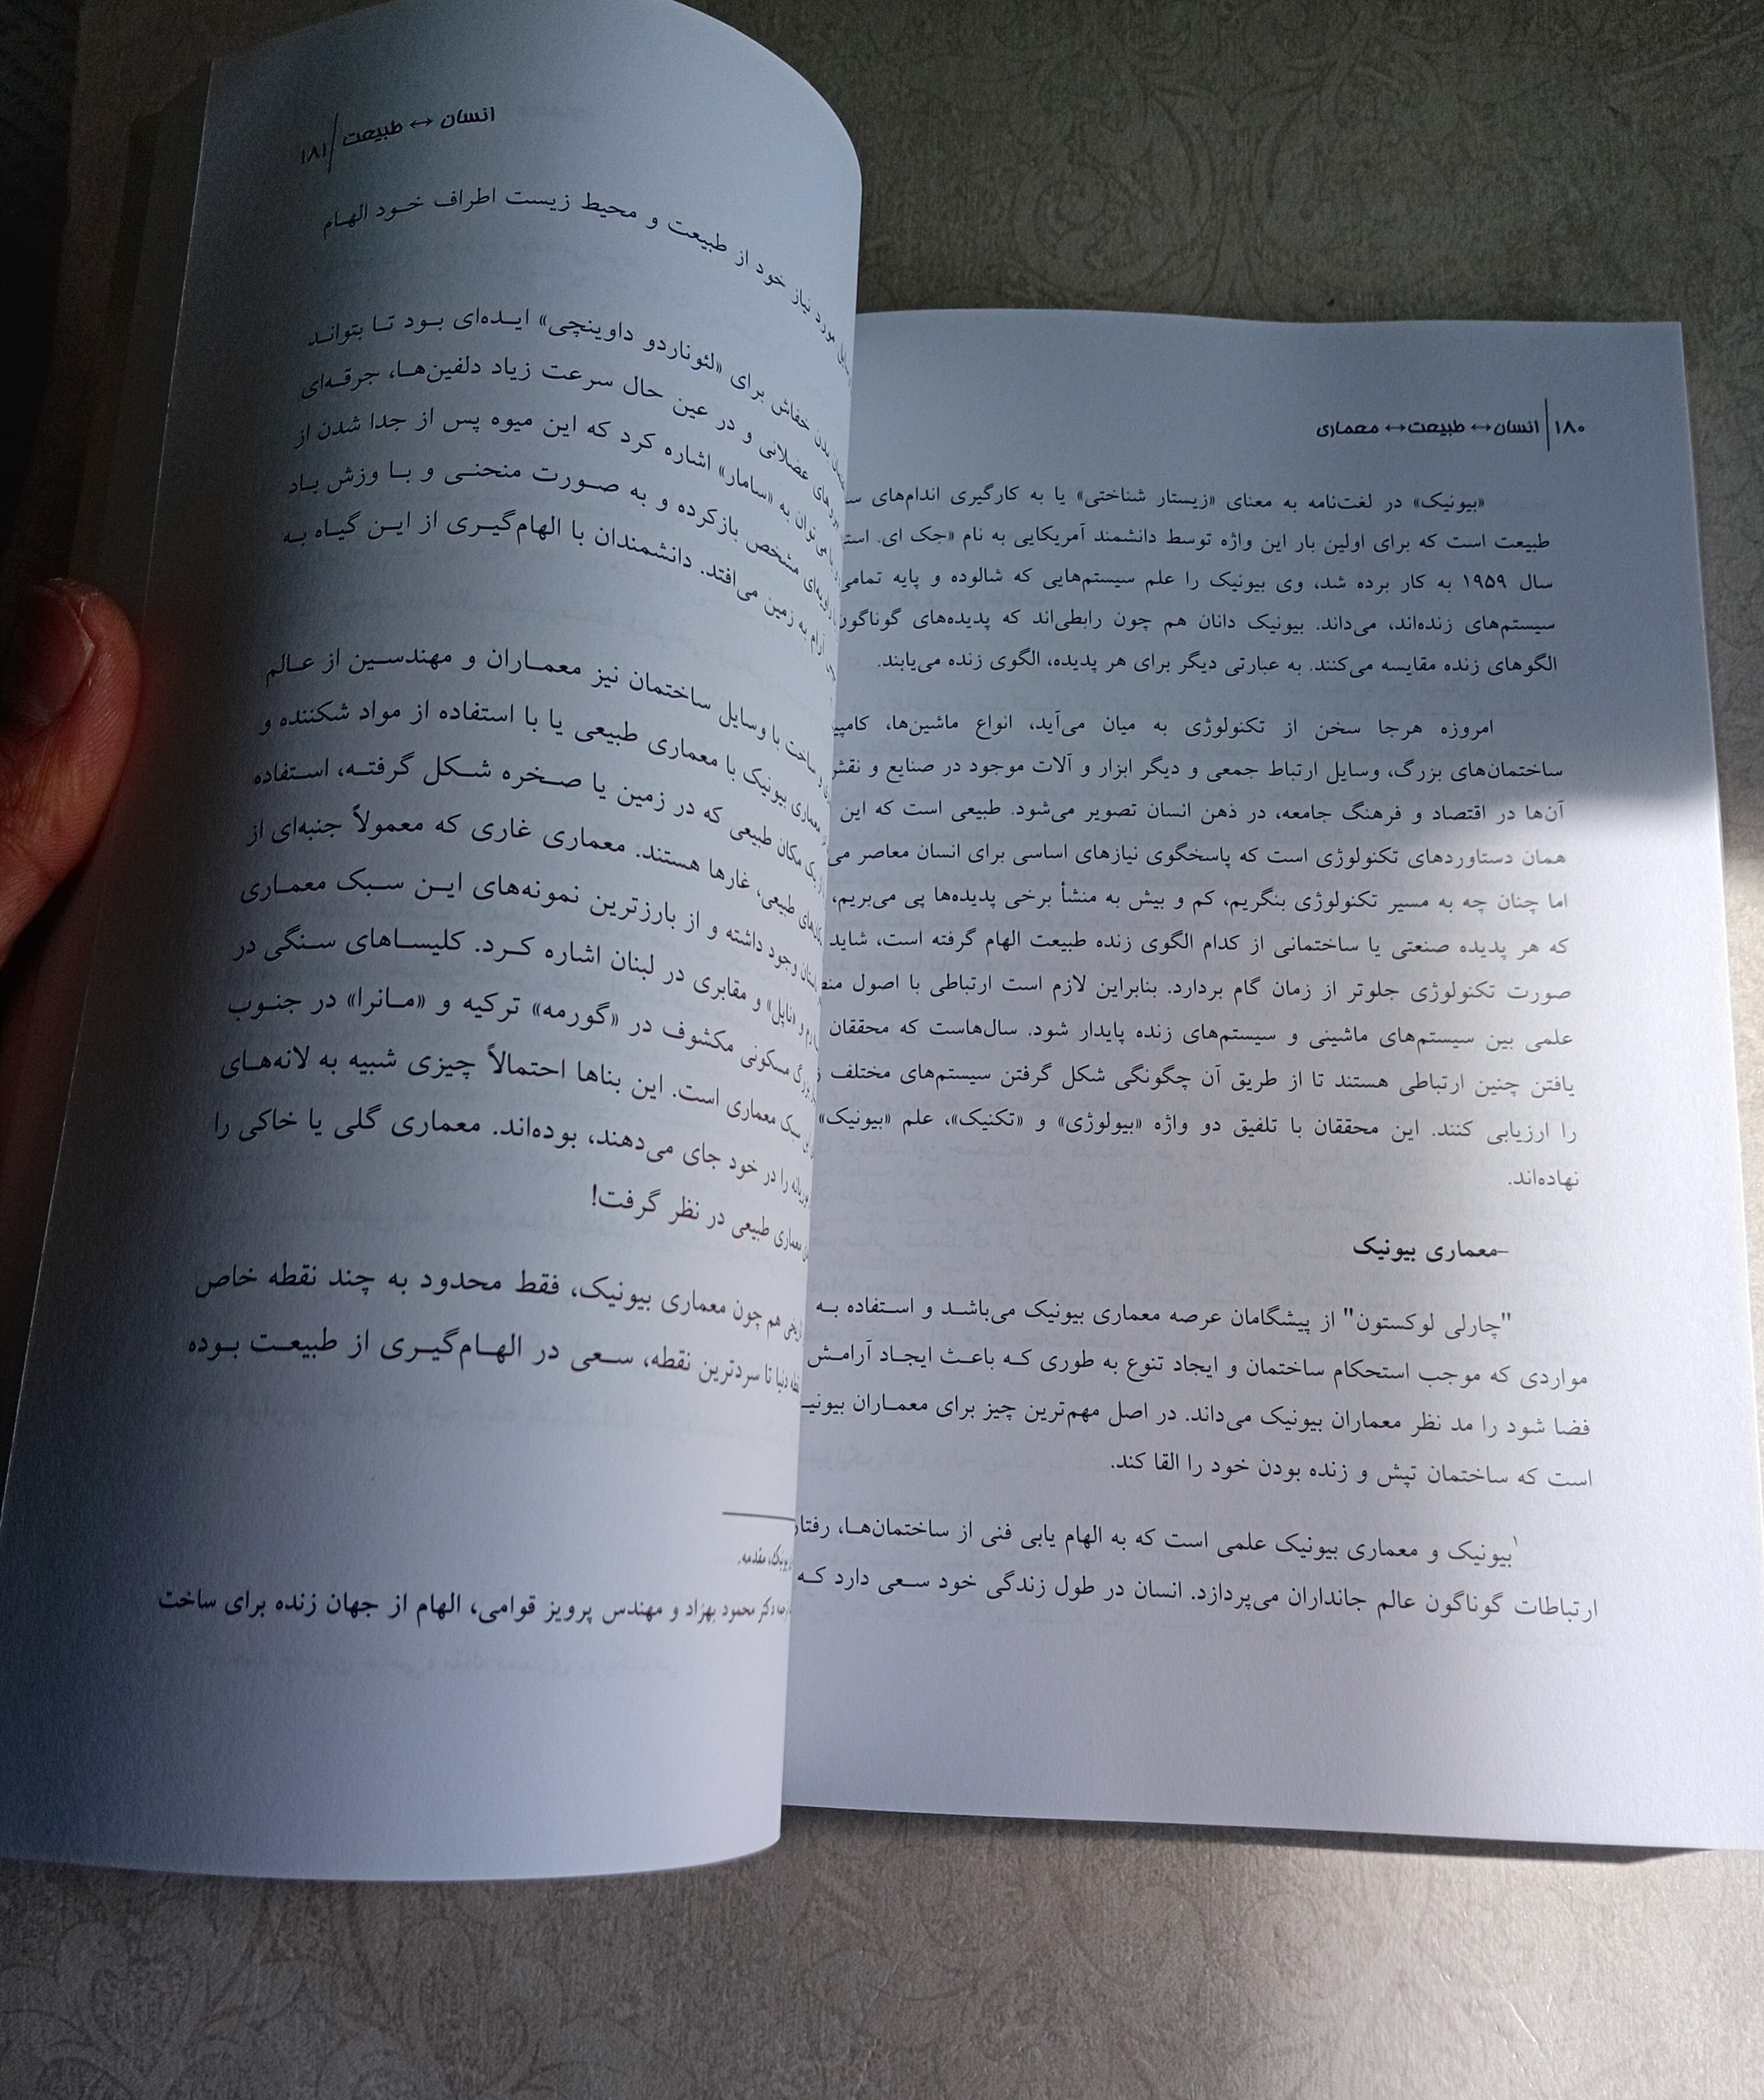 ۱۸۰ انسان↔ طبیعت↔ معماری
«بیونیک» در لغت‌نامه به معنای «زیستار شناختی» یا به کارگیری اندام‌های
طبیعت است که برای اولین بار این واژه توسط دانشمند آمریکایی به نام «جک ای.
سال ۱۹۵۹ به کار برده شد، وی بیونیک را علم سیستم‌هایی که شالوده و پایه تمامی
سیستم‌های زنده‌اند، می‌داند. بیونیک دانان هم چون رابطی‌اند که پدیده‌های گوناگون
الگوهای زنده مقایسه می‌کنند. به عبارتی دیگر برای هر پدیده، الگوی زنده می‌یابند.
امروزه هرجا سخن از تکنولوژی به میان می‌آید، انواع ماشین‌ها،
ساختمان‌های بزرگ، وسایل ارتباط جمعی و دیگر ابزار و آلات موجود در صنایع و نقش
آن‌ها در اقتصاد و فرهنگ جامعه، در ذهن انسان تصویر می‌شود. طبیعی است که این
همان دستاوردهای تکنولوژی است که پاسخگوی نیازهای اساسی برای انسان معاصر
اما چنان چه به مسیر تکنولوژی بنگریم، کم و بیش به منشأ برخی پدیده‌ها پی می‌بریم،
که هر پدیده صنعتی یا ساختمانی از کدام الگوی زنده طبیعت الهام گرفته است، شاید
صورت تکنولوژی جلوتر از زمان گام بردارد. بنابراین لازم است ارتباطی با اصول
علمی بین سیستم‌های ماشینی و سیستم‌های زنده پایدار شود. سال‌هاست که محققان
یافتن چنین ارتباطی هستند تا از طریق آن چگونگی شکل گرفتن سیستم‌های مختلف
را ارزیابی کنند. این محققان با تلفیق دو واژه «بیولوژی» و «تکنیک»، علم «بیونیک»
نهاده‌اند.
-معماری بیونیک
"چارلی لوکستون" از پیشگامان عرصه معماری بیونیک می‌باشد و استفاده به
مواردی که موجب استحکام ساختمان و ایجاد تنوع به طوری که باعث ایجاد آرامش
فضا شود را مد نظر معماران بیونیک می‌داند. در اصل مهم‌ترین چیز برای معماران
است که ساختمان تپش و زنده بودن خود را القا کند.
۱بیونیک و معماری بیونیک علمی است که به الهام یابی فنی از ساختمان‌ها،
ارتباطات گوناگون عالم جانداران می‌پردازد. انسان در طول زندگی خود سعی دارد که
انسان ↔ طبیعت ۱۸۱
مورد نیاز خود از طبیعت و محیط زیست اطراف خود الهام
بدن خفاش برای «لئوناردو داوینچی» ایده‌ای بود تا بتواند
عضلانی و در عین حال سرعت زیاد دلفین‌ها، جرقه‌ای
می‌توان به «سامار» اشاره کرد که این میوه پس از جدا شدن از
مشخص بازکرده و به صورت منحنی و با وزش باد
آرام به زمین می‌افتد. دانشمندان با الهام‌گیری از این گیاه به
و ساخت با وسایل ساختمان نیز معماران و مهندسین از عالم
معماری بیونیک با معماری طبیعی یا با استفاده از مواد شکننده و
یک مکان طبیعی که در زمین یا صخره شکل گرفته، استفاده
طبیعی، غارها هستند. معماری غاری که معمولاً جنبه‌ای از
وجود داشته و از بارزترین نمونه‌های این سبک معماری
و «ناپل» و مقابری در لبنان اشاره کرد. کلیساهای سنگی در
مسکونی مکشوف در «گورمه» ترکیه و «مانرا» در جنوب
سبک معماری است. این بناها احتمالاً چیزی شبیه به لانه‌های
را در خود جای می‌دهند، بوده‌اند. معماری گلی یا خاکی را
معماری طبیعی در نظر گرفت!
هم چون معماری بیونیک، فقط محدود به چند نقطه خاص
دنیا تا سردترین نقطه، سعی در الهام‌گیری از طبیعت بوده
بیونیک، مقدمه.
دکتر محمود بهزاد و مهندس پرویز قوامی، الهام از جهان زنده برای ساخت